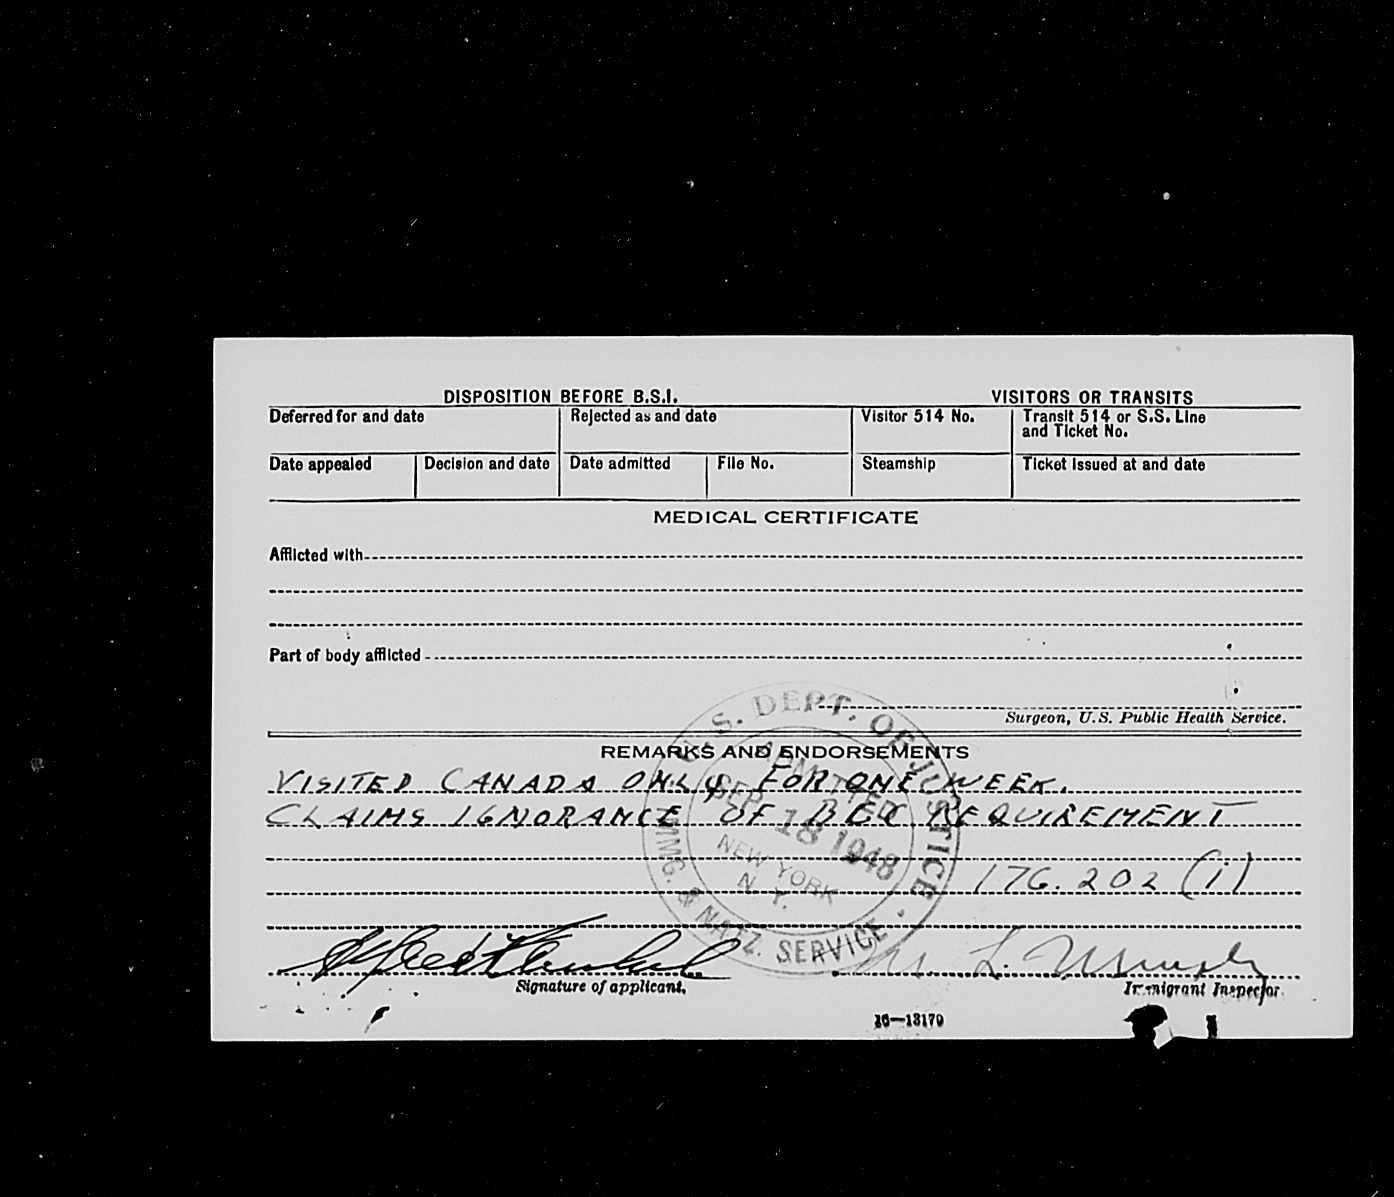 DISPOSITION BEFORE B.S.I.
VISITORS OR TRANSITS
Deferred for and date
Rejected as and date
Visitor 514 No.
Transit 514 or S.S. Line
and Ticket No.
Date appealed
Decision and date
Date admitted
File No.
Steamship
Ticket issued at and date
MEDICAL CERTIFICATE
Afflicted with
Part of body afflicted
Surgeon, U.S. Public Health Service.
REMARKS AND ENDORSEMENTS
VISITED CANADA ONLY FOR ONE WEEK.
CLAIMS IGNORANCE OF REQUIREMENT
176.202 (i)
U.S. DEPT. OF JUSTICE
ADMITTED
SEP 18 1948
NEW YORK
N. Y.
IMMG. & NATZ. SERVICE
Alfred
L.
Signature of applicant.
Immigrant Inspector.
16—13170